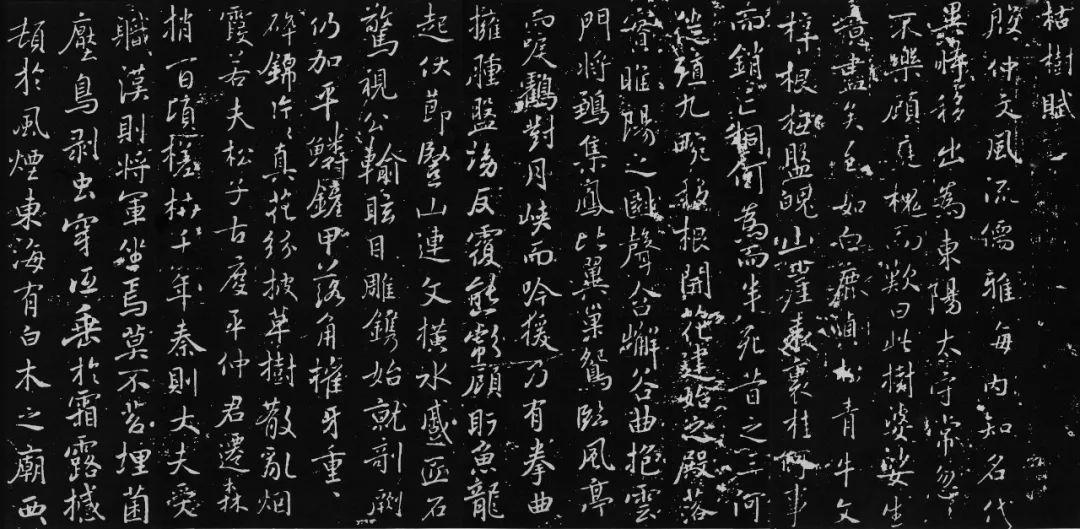 枯樹賦
殷仲文風流儒雅海內知名代
異時移出為東陽太守常忽忽
不樂顧庭槐而歎曰此樹婆娑生
意盡矣至如白鹿貞松青牛文
梓根柢盤魄山崖表裏桂何事
而銷亡桐何為而半死昔之三河
徙殖九畹移根開花建始之殿落
實睢陽之園聲含嶰谷曲抱雲
門將鶵集鳳比翼巢鴛臨風亭
而唳鶴對月峽而吟猨乃有拳曲
擁腫盤坳反覆熊彪顧盻魚龍
起伏節豎山連文橫水蹙匠石
驚視公輸眩目雕鐫始就剞劂
仍加平鱗鏟甲落角摧牙重〻
碎錦片〻真花紛披草樹散亂烟
霞若夫松子古度平仲君遷森
梢百頃槎枿千年秦則大夫受
職漢則將軍坐焉莫不苔埋菌
壓鳥剥虫穿低垂於霜露撼
頓於風煙東海有白木之廟西